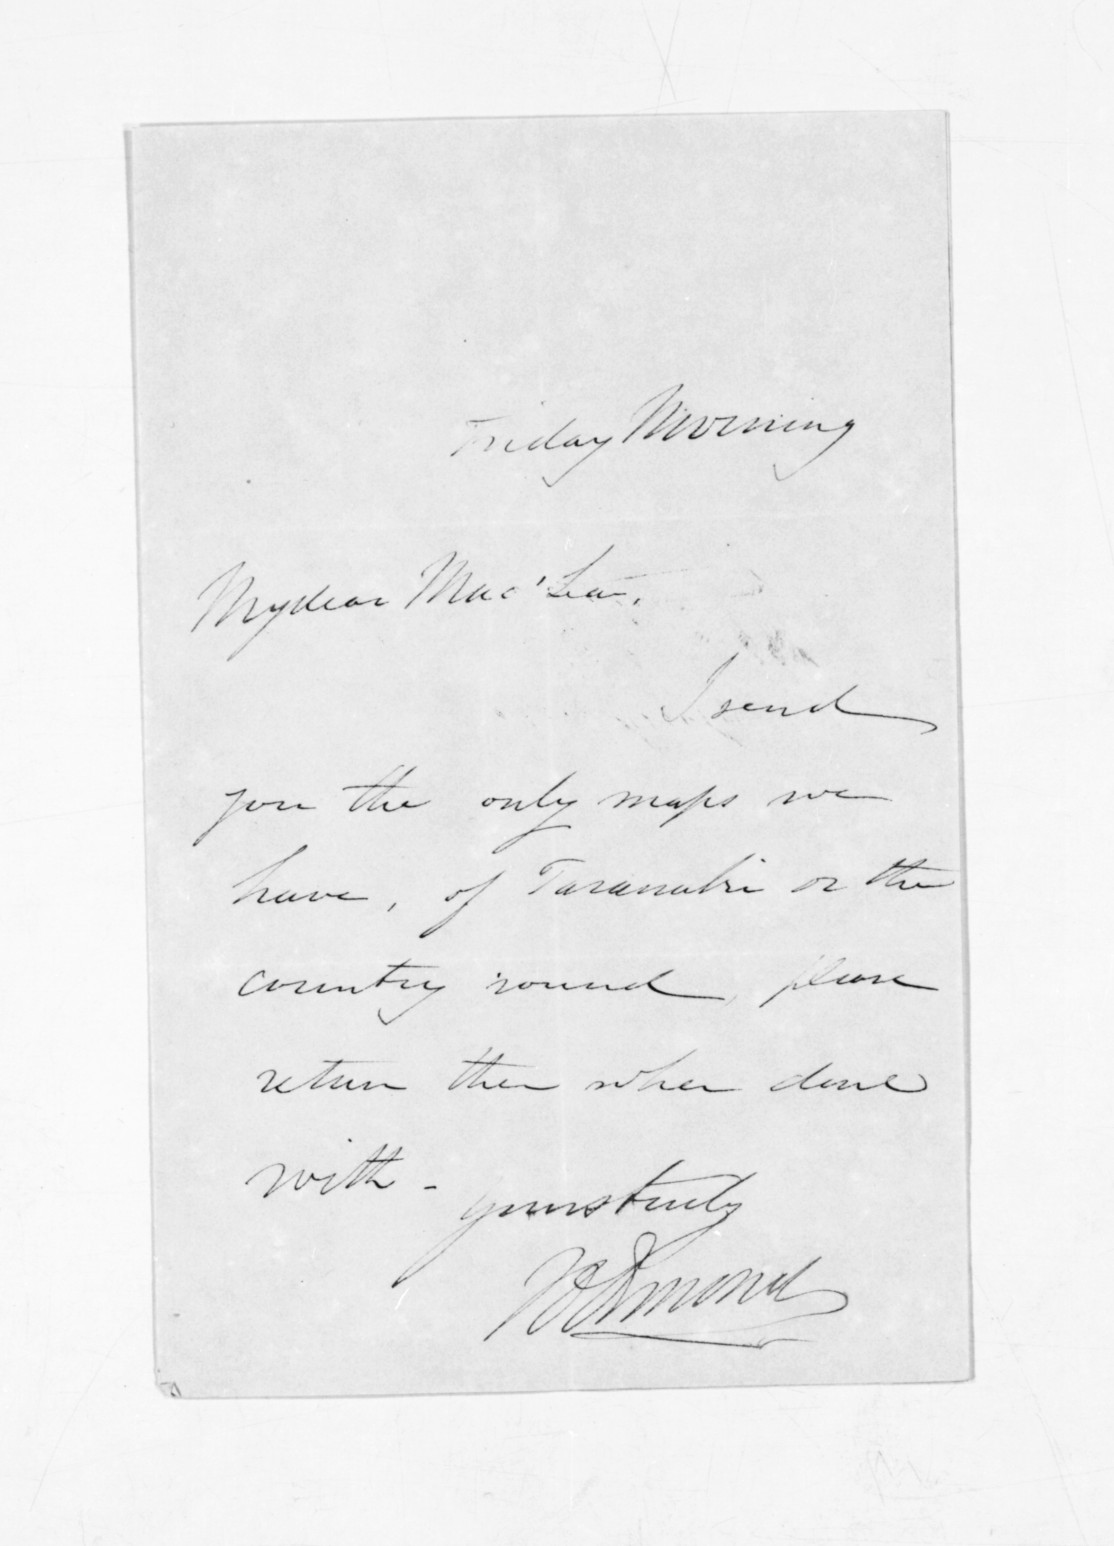 Friday Morning
My dear Mac'Lean,
I send
you the only maps we
have, of Taranaki or the
country round, please
return them when done
with -
yours truly